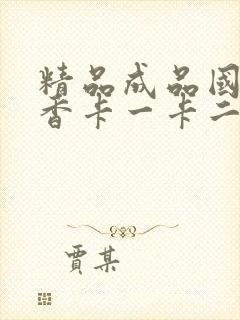 精品成品國
香卡一卡二
賈某